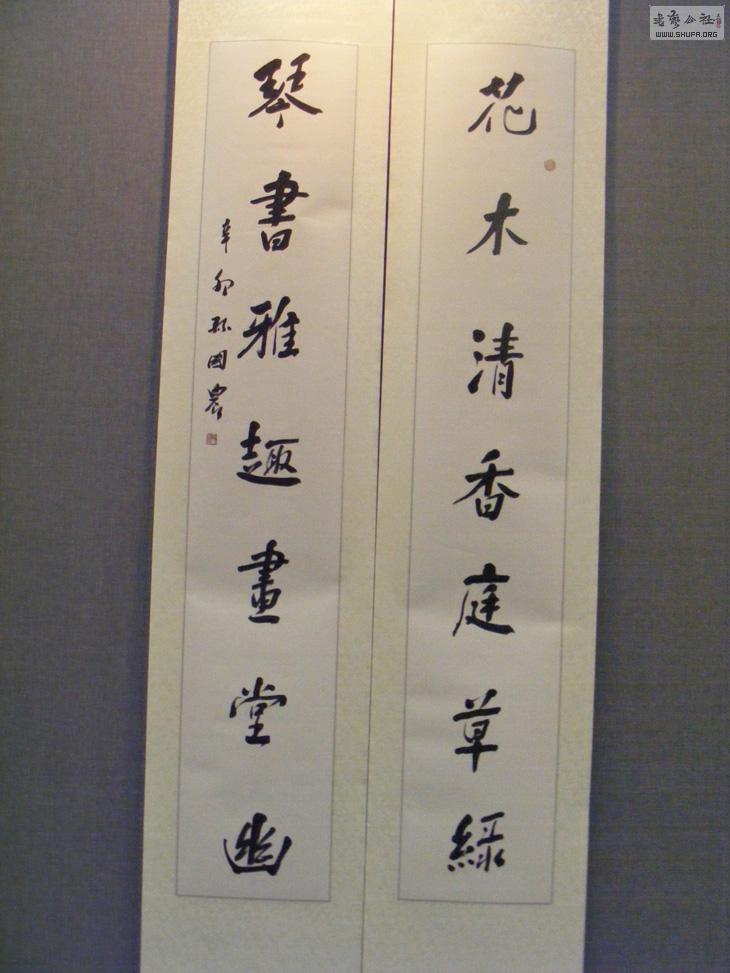 花木清香庭草綠
琴書雅趣畫堂幽
辛卯孫國農
書藝公社
WWW.SHUFA.ORG